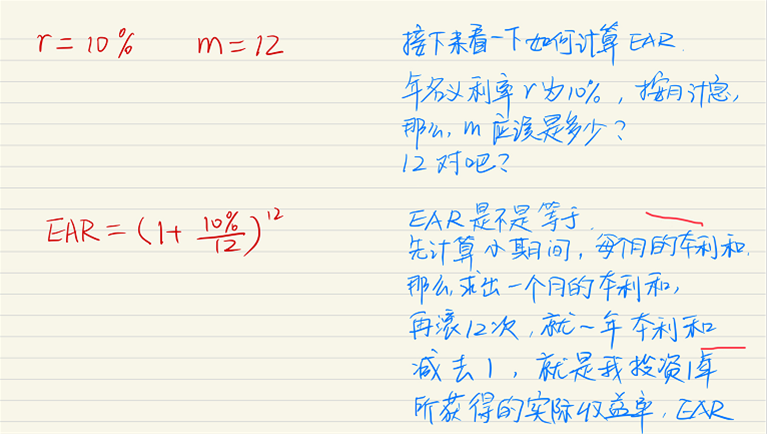 r = 10%  m = 12
接下来看一下如何计算 EAR.
年名义利率 r 为10%，按月计息，
那么，m 应该是多少？
12 对吧？
EAR = (1 + 10%/12)^12
EAR 是不是等于.
先计算小期间，每个月的本利和.
那么求出一个月的本利和，
再滚12次，就一年本利和
减去1，就是我投资1年
所获得的实际收益率，EAR